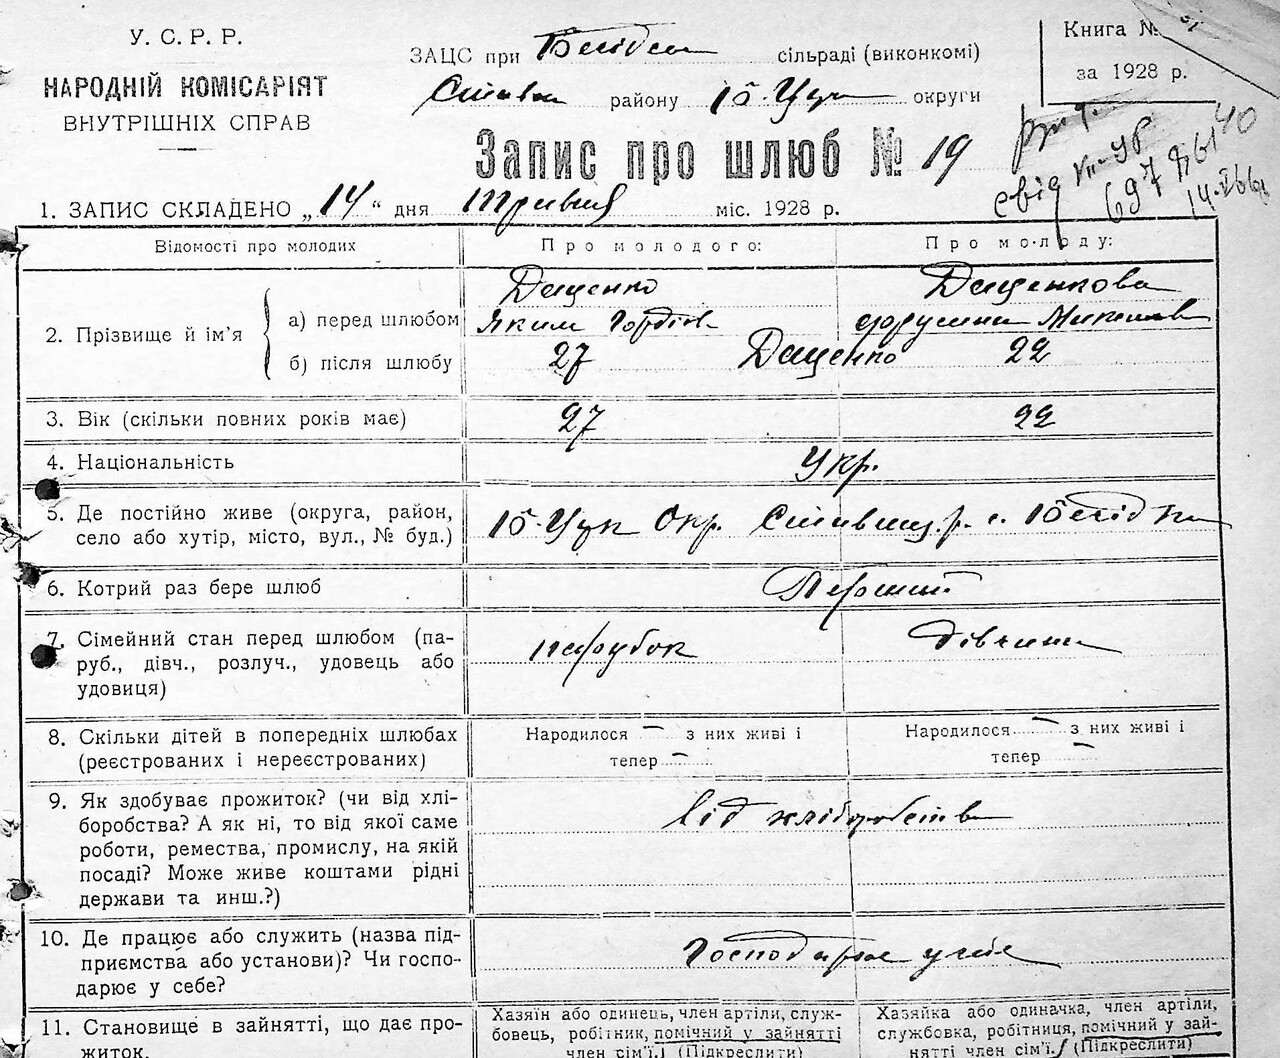 У. С. Р. Р.
НАРОДНІЙ КОМІСАРІЯТ
ВНУТРІШНІХ СПРАВ
ЗАЦС при сільраді (виконкомі)
району округи
Книга №
за 1928 р.
Запис про шлюб № 19
свід
1. ЗАПИС СКЛАДЕНО „14“ дня травня міс. 1928 р.
Відомості про молодих Про молодого: Про молоду:
2. Прізвище й ім'я
а) перед шлюбом
Даценко Даценкова
Яким Гордіїв
б) після шлюбу
27 Даценко 22
3. Вік (скільки повних років має) 27 22
4. Національність Укр.
5. Де постійно живе (округа, район,
село або хутір, місто, вул., № буд.)
Б-Цук Окр. Ставищ. р. с. Бесідка
6. Котрий раз бере шлюб Первший
7. Сімейний стан перед шлюбом (па-
руб., дівч., розлуч., удовець або
удовиця)
парубок дівчина
8. Скільки дітей в попередніх шлюбах
(реєстрованих і нереєстрованих)
Народилося — з них живі і
тепер —
Народилося — з них живі і
тепер —
9. Як здобуває прожиток? (чи від хлі-
боробства? А як ні, то від якої саме
роботи, ремества, промислу, на якій
посаді? Може живе коштами рідні
держави та инш.?)
від хліборобства
10. Де працює або служить (назва під-
приємства або установи)? Чи госпо-
дарює у себе?
Господарює у себе
11. Становище в зайнятті, що дає про-
житок.
Хазяїн або одинець, член артіли, служ-
бовець, робітник, помічний у зайнятті
член сім'ї. (Підкреслити)
Хазяйка або одиначка, член артіли,
службовка, робітниця, помічний у зай-
нятті член сім'ї. (Підкреслити)